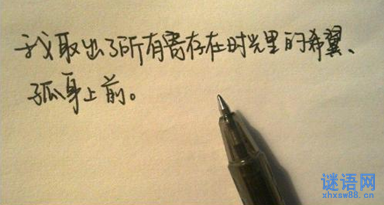 我取出了所有寄存在时光里的希翼、
孤身上前。
谜语网
zhxsw88.cn